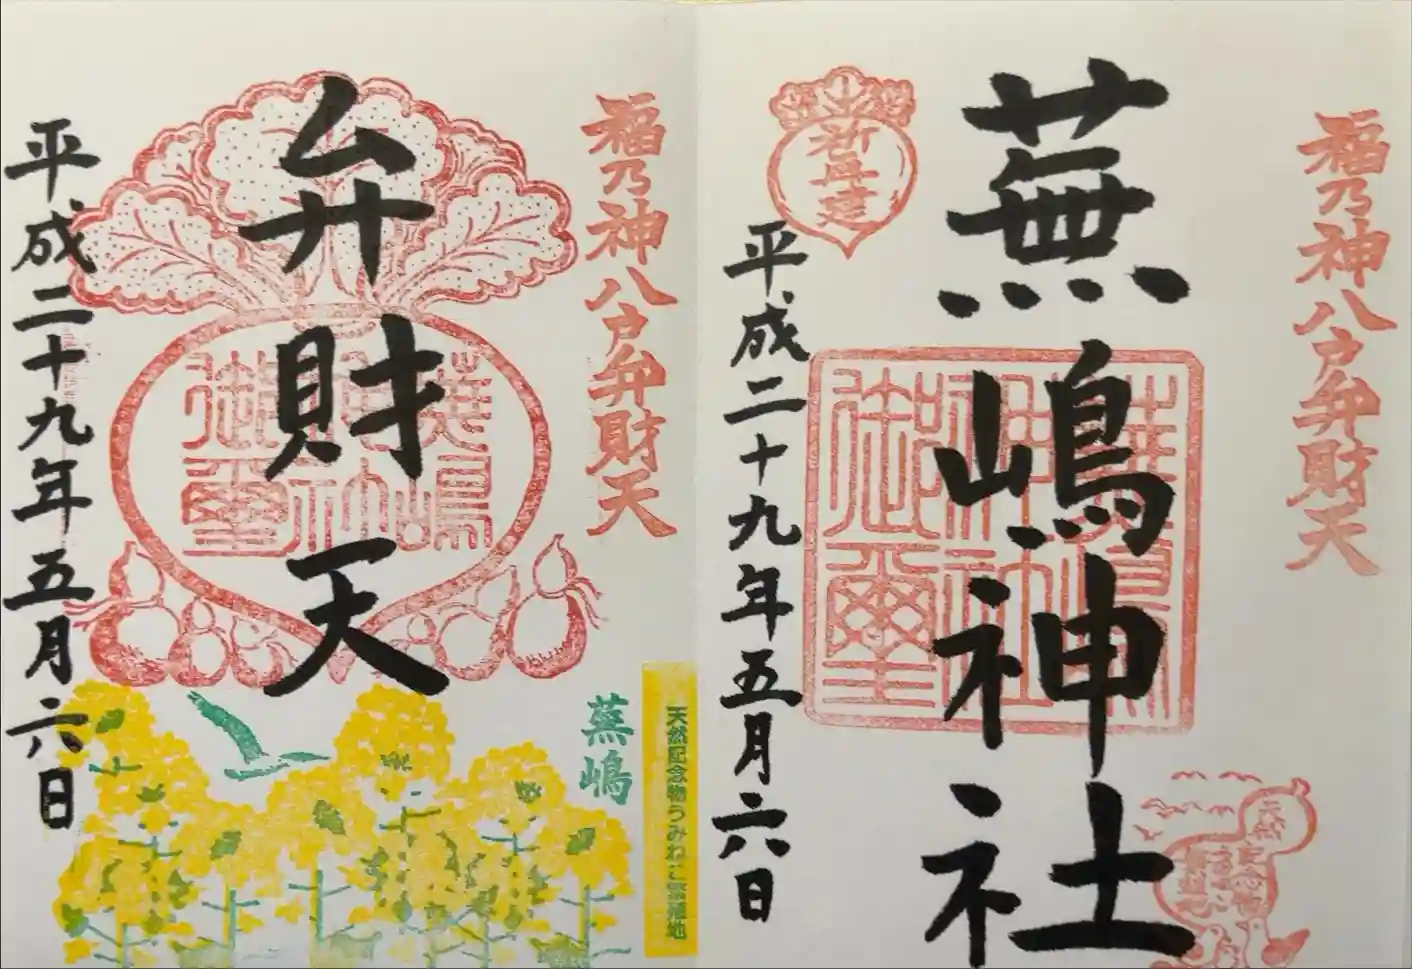 福乃神八戸弁財天
蕪嶋神社
蕪嶋神社御璽
新生再建
平成二十九年五月六日
福乃神八戸弁財天
弁財天
蕪嶋神社御璽
平成二十九年五月六日
蕪嶋
天然記念物うみねこ繁殖地